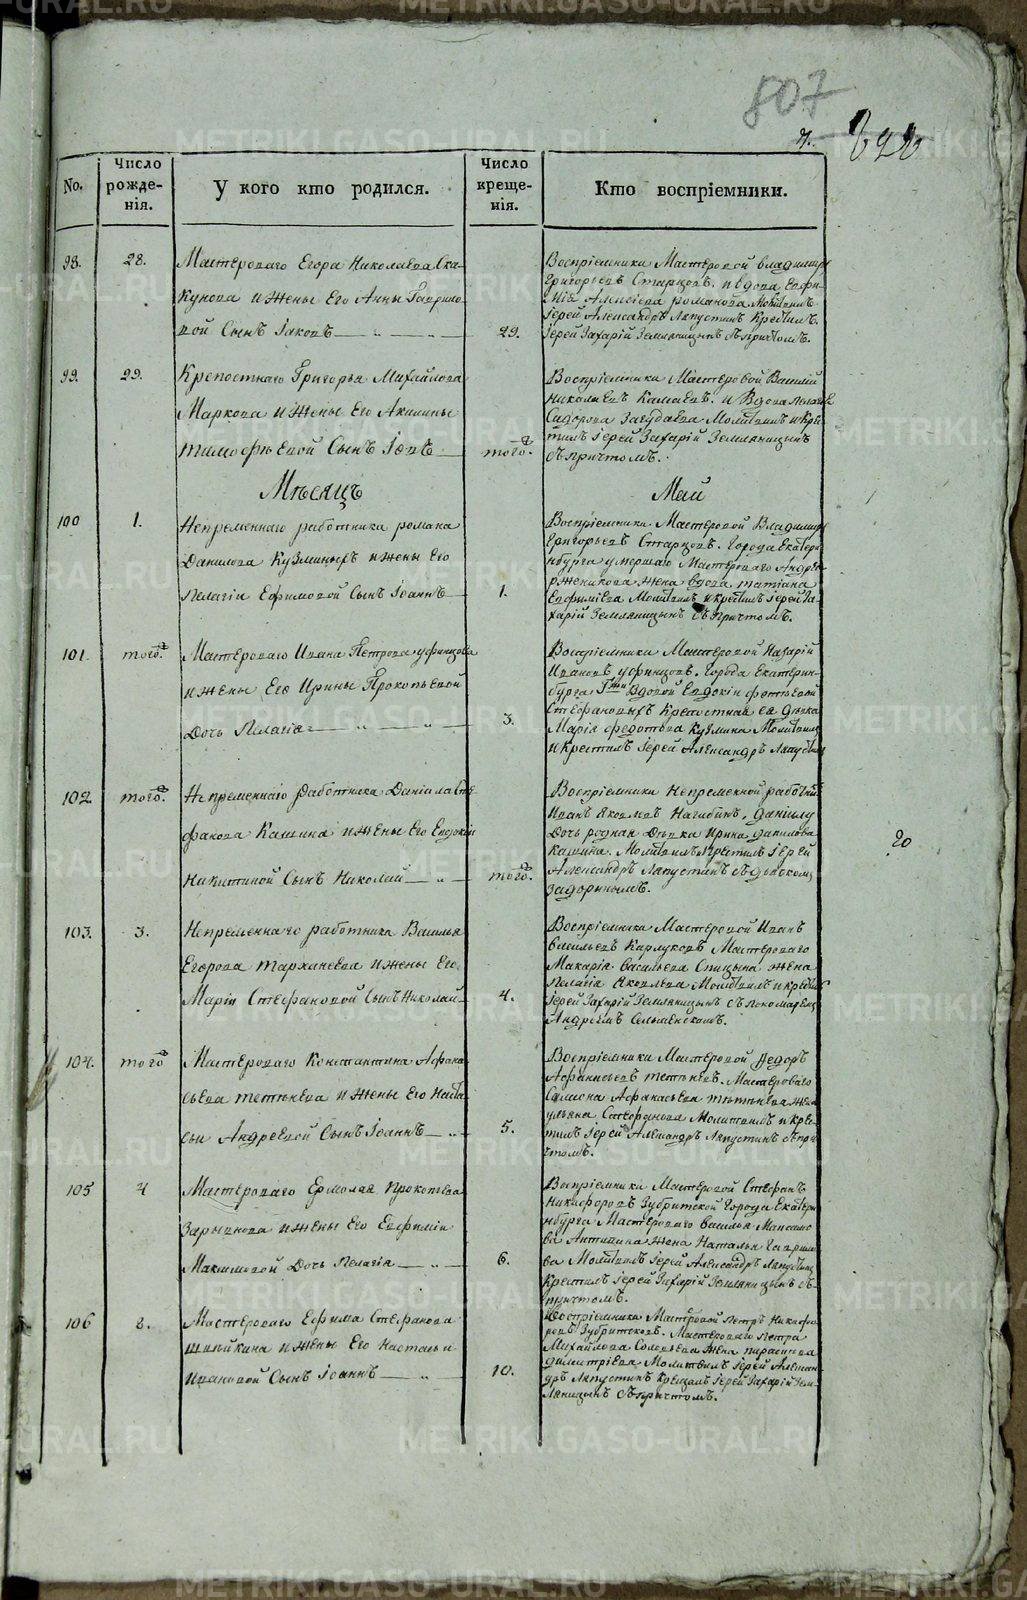 807
No.
Число рожде-нія.
У кого кто родился.
Число креще-нія.
Кто воспріемники.
98.
28.
Мастероваго Егора Николаева Ска-
кунова и жены Его Анны Гаврило-
вой Сынъ Іаковъ
29.
Воспріемники Мастеровой Владимиръ
Григорьевъ Старцовъ. и вдова Евфи-
мія Алексіева романова Молитвилъ
Іерей Александръ Ляпустинъ Крестилъ
Іерей Захарій Земляницынъ съ причтомъ.
99.
29.
Крепостнаго Григорья Михайлова
Маркова и жены Его Акилины
тимофѣевой Сынъ Іовъ
того.
Воспріемники Мастеровой Василій
Николаевъ Камаевъ. и Вдова Пелагея
Сидорова Молитвилъ и Кре-
тилъ Іерей Захарій Земляницынъ
съ причтомъ.
Мѣсяцъ
Май
100
1.
Непременнаго работника романа
Данилова Кузминыхъ и жены Его
Пелагіи Ефимовой Сынъ Іоаннъ
1.
Воспріемники Мастеровой Владимиръ
Григорьевъ Старцовъ. Города Екатери-
нбурга умершаго Мастероваго Андрея
ржевникова жена вдова татіана
Евфиміева Молитвилъ и крестилъ Іерей За-
харій Земляницынъ съ Причтомъ.
101.
того.
Мастероваго Ивана Петрова уфинцова
и жены Его Ирины Прокопьевой
Дочь Пелагія
3.
Воспріемники Мастеровой Назарій
Ивановъ уфинцовъ. Города Екатерин-
бурга Гжи Вдовой Евдокіи фотіевой
Стефановыхъ Крепостная ея Девка
Марія федотова Кузмина Молитвилъ
и крестилъ Іерей Александръ Ляпустинъ
102
того.
Непременнаго работника Даніила Сте-
фанова Кашина и жены Его Евдокіи
Никитиной Сынъ Николай
того.
Воспріемники Непременной работникъ
Иванъ Яковлевъ Нагибинъ, Даніилу
Дочь родная Девка Ирина данилова
кашина. Молитвилъ и крестилъ Іерей
Александръ Ляпустинъ съ дьячкомъ
Задоринымъ.
20
103.
3.
Непременнаго работника Василья
Егорова тарханеева и жены Его
Маріи Стефановой Сынъ Николай
4.
Воспріемники Мастеровой Иванъ
Васильевъ Карлуковъ Мастероваго
Макарія Васильева Спицына жена
Пелагія Яковлева Молитвилъ и крестилъ
Іерей Захарій Земляницынъ съ Пономаремъ
Андреемъ Сельменскомъ.
104.
того
Мастероваго Константина Афана-
сьева тетенева и жены Его Наста-
сьи Андреевой Сынъ Іоаннъ
5.
Воспріемники Мастеровой Федоръ
Афанасьевъ тетеневъ. Мастероваго
Самсона Афанасьева тетенева жена
ульяна Стефанова Молитвилъ и кре-
тилъ Іерей Александръ Ляпустинъ съ при-
чтомъ.
105
4
Мастероваго Ермолая Прокопьева
Зарывнова и жены Его Евфиміи
Максимовой Дочь Пелагія
6.
Воспріемники Мастеровой Стефанъ
Никифоровъ Зубрицкой Города Екатери-
нбурга Мастероваго Василья Максимо-
ва Антипина жена Наталья Гаврило-
ва Молитвилъ Іерей Александръ Ляпустинъ
Крестилъ Іерей Захарій Земляницынъ съ
причтомъ.
106
8.
Мастероваго Ефима Стефанова
шпыкина и жены Его Настасьи
Ивановой Сынъ Іоаннъ
10.
Воспріемники Мастеровой Петръ Никифо-
ровъ Зубрицковъ. Мастероваго Петра
Михайлова Соловьева жена параскева
димитріева Молитвилъ Іерей Алексан-
дръ Ляпустинъ Крещалъ Іерей Захарій Зем-
ляницынъ съ причтомъ.
METRIKI.GASO-URAL.RU